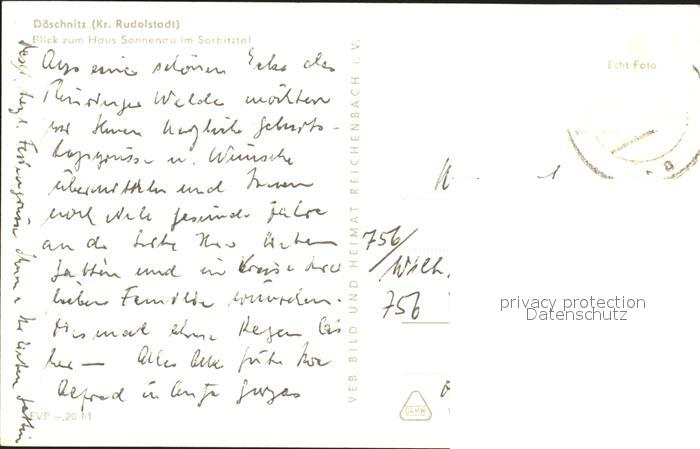 Döschnitz (Kr. Rudolstadt)
Blick zum Haus Sonnenau im Sorbitztal
Aus einer schönen Ecke des
Thüringer Waldes möchten
wir Ihnen herzliche Geburts-
tagsgrüsse u. Wünsche
übermitteln und Ihnen
noch viele gesunde Jahre
an der Seite Ihrer lieben
Gattin und im Kreise Ihrer
lieben Familie wünschen.
Diesmal ohne Regen bis
her — Alles Gute Ihre
Alfred
EVP -,20 M
VEB BILD UND HEIMAT REICHENBACH I. V.
Echt Foto
756/
Wilh.
756
DAMW
privacy protection
Datenschutz